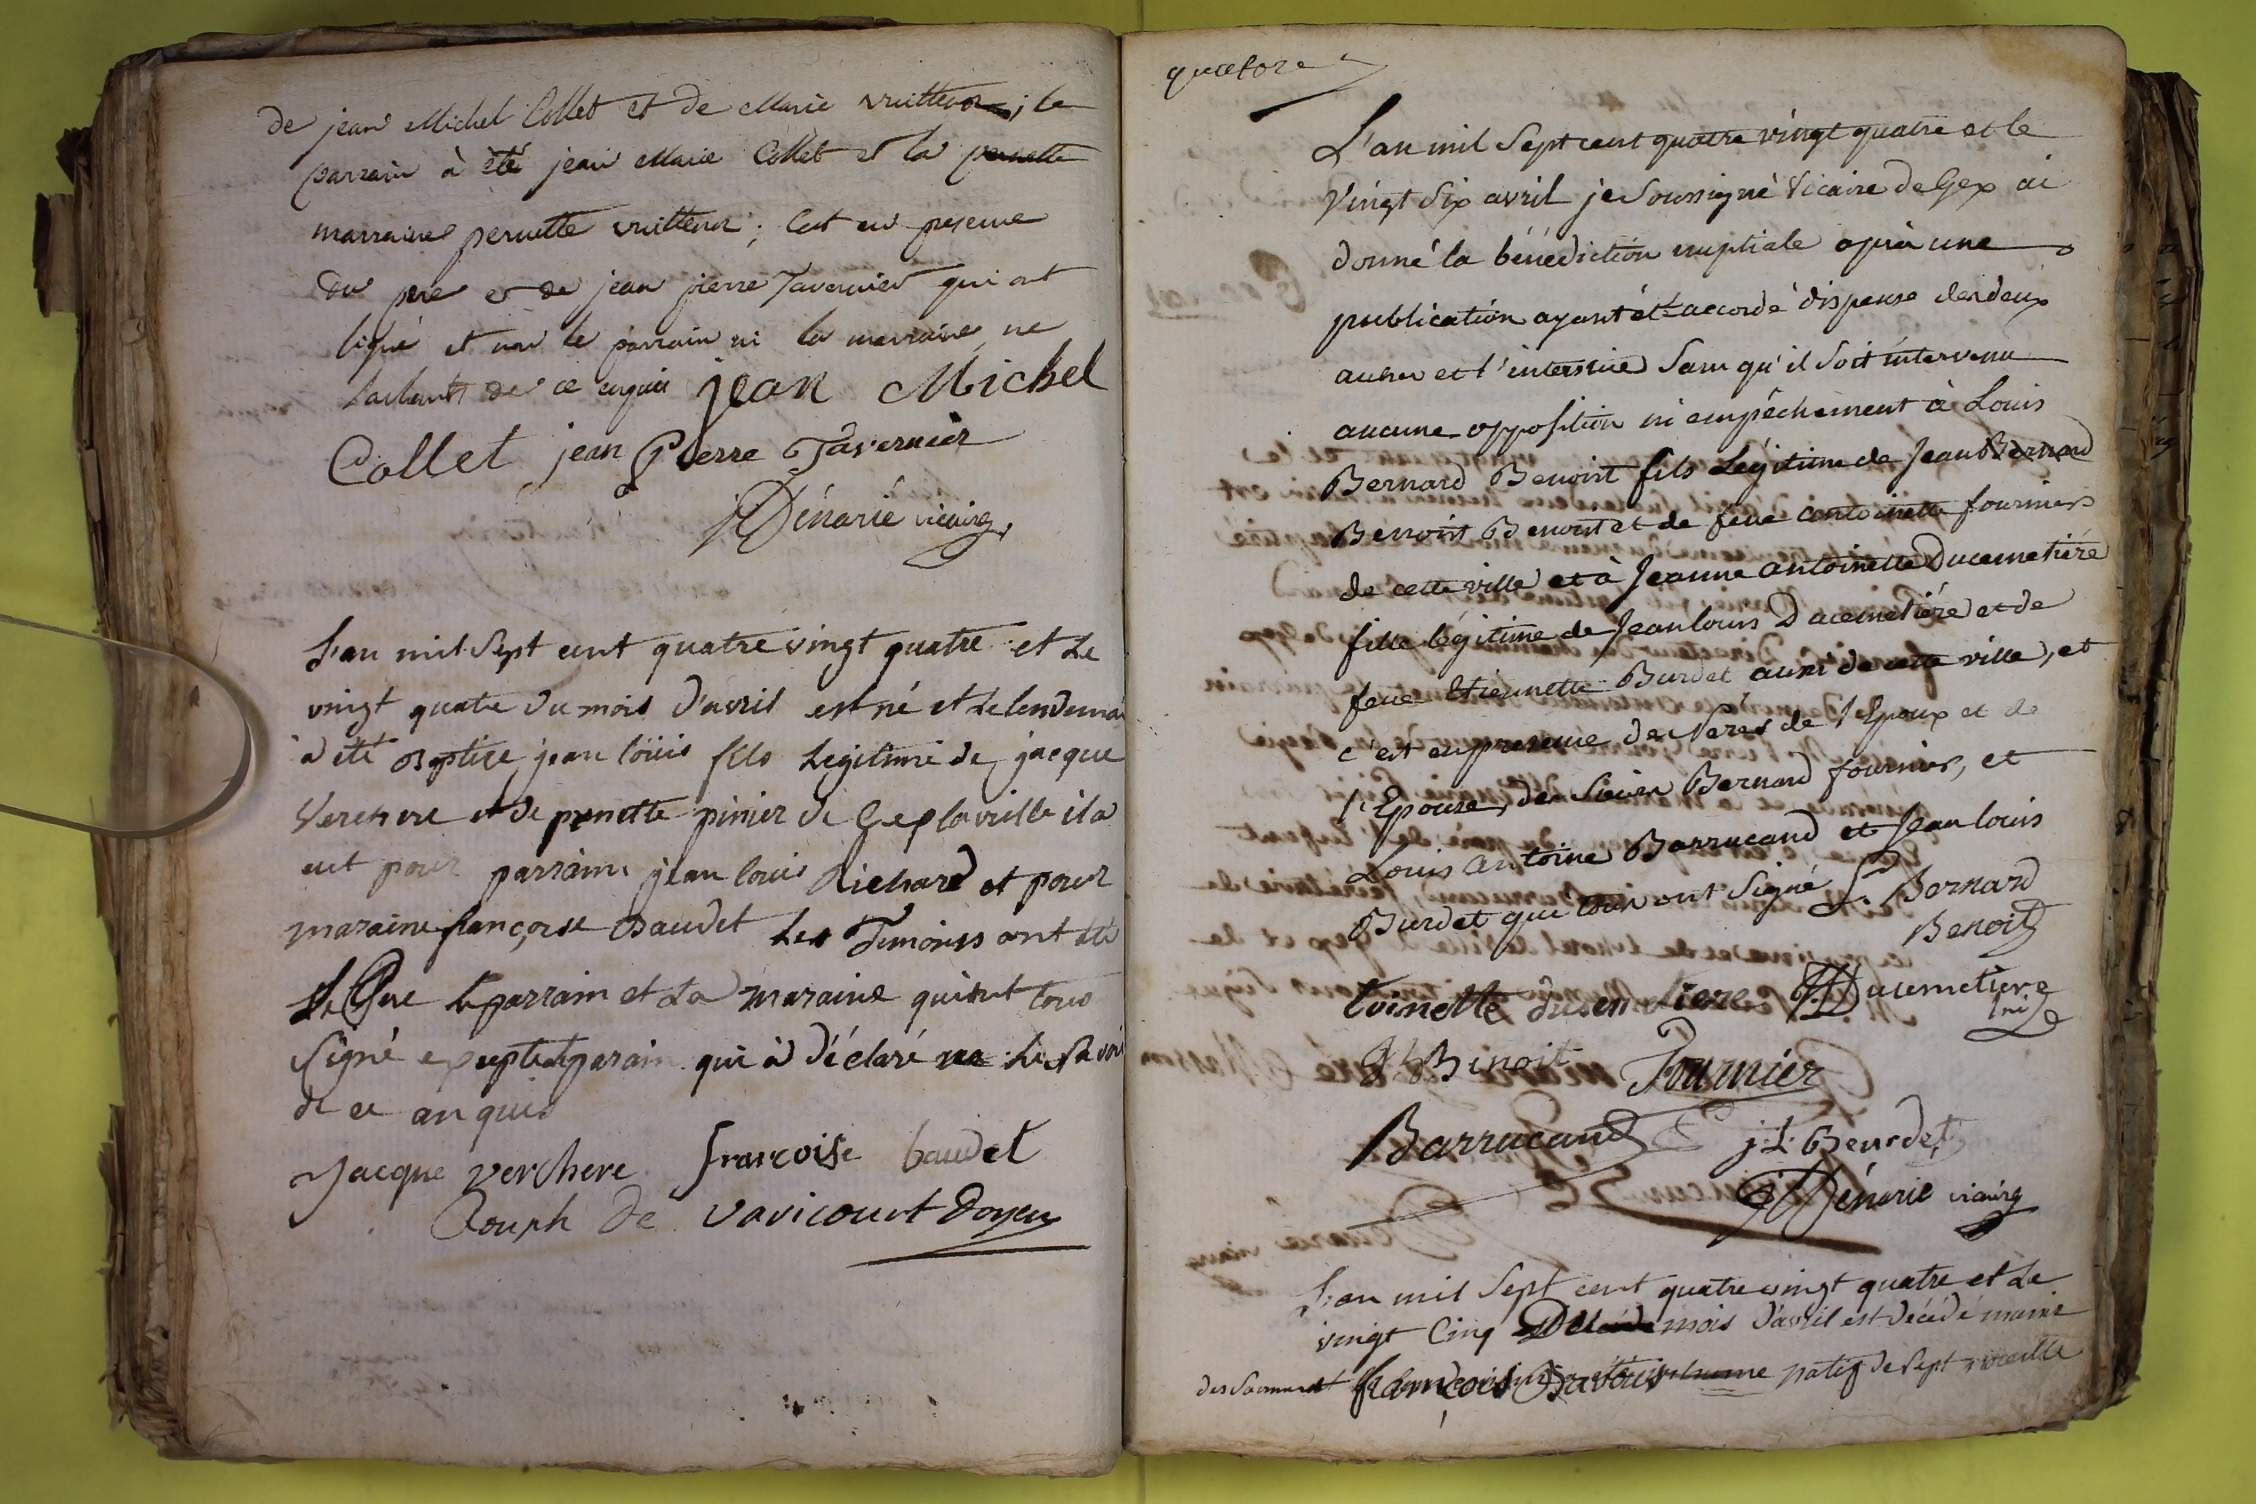 de jean Michel Collet et de Marie vuitteno ; le
parrain à été jean Marie Collet et la pernette
marraine pernette vuitteno ; C'est en presence
du pere et de jean pierre Tavernier qui ont
signé et non le parrain ni la marraine ne
sachants de ce enquis jean Michel
Collet jean Pierre Tavernier
Dénarié vicaire
L'an mil Sept cent quatre vingt quatre et Le
vingt quatre du mois d'avril est né et Le lendemai
à été Baptise jean loüis fils Legitime de jacque
Verchere et de pernette pinier de Gex la ville il a
eut pour parrain jean louis Richard et pour
maraine françoise Baudet Les Temoins ont été
Le Pere Le parrain et La maraine qui ont tous
Signé excepté Le parain qui à déclaré ne Le Savoir
de ce anquis
Jacque verchere francoise baudet
Joseph De Varicourt Doyen
quatorze
L'an mil Sept cent quatre vingt quatre et le
Vingt Six avril je Soussigné Vicaire de Gex ai
donné la bénédiction nuptiale après une
publication ayant été accordé dispense des deux
autres et l'interstice Sans qu'il Soit intervenu
aucune opposition ni empêchement à Louis
Bernard Benoist fils Légitime de Jean Bernard
Benoist Benoist et de feue antoinette fournier
de cette ville et à Jeanne antoinette Ducemetiére
fille légitime de Jean louis Ducemetiére et de
feue Etiennette Burdet aussi de cette ville, et
c'est en presence des Peres de l'Epoux et de
l'Epouse, des Sieurs Bernard fournier, et
Louis Antoine Barrucand et Jean louis
Burdet qui tous ont Signé L. Bernard
Benoit
toinette ducemetiere Ducemetiere
J B Benoit Fournier
Barrucand j: L: Beurdet
Dénarié vicaire
L'an mil Sept cent quatre vingt quatre et Le
vingt Cinq mois d'avril est décédé marie
natif de Sept